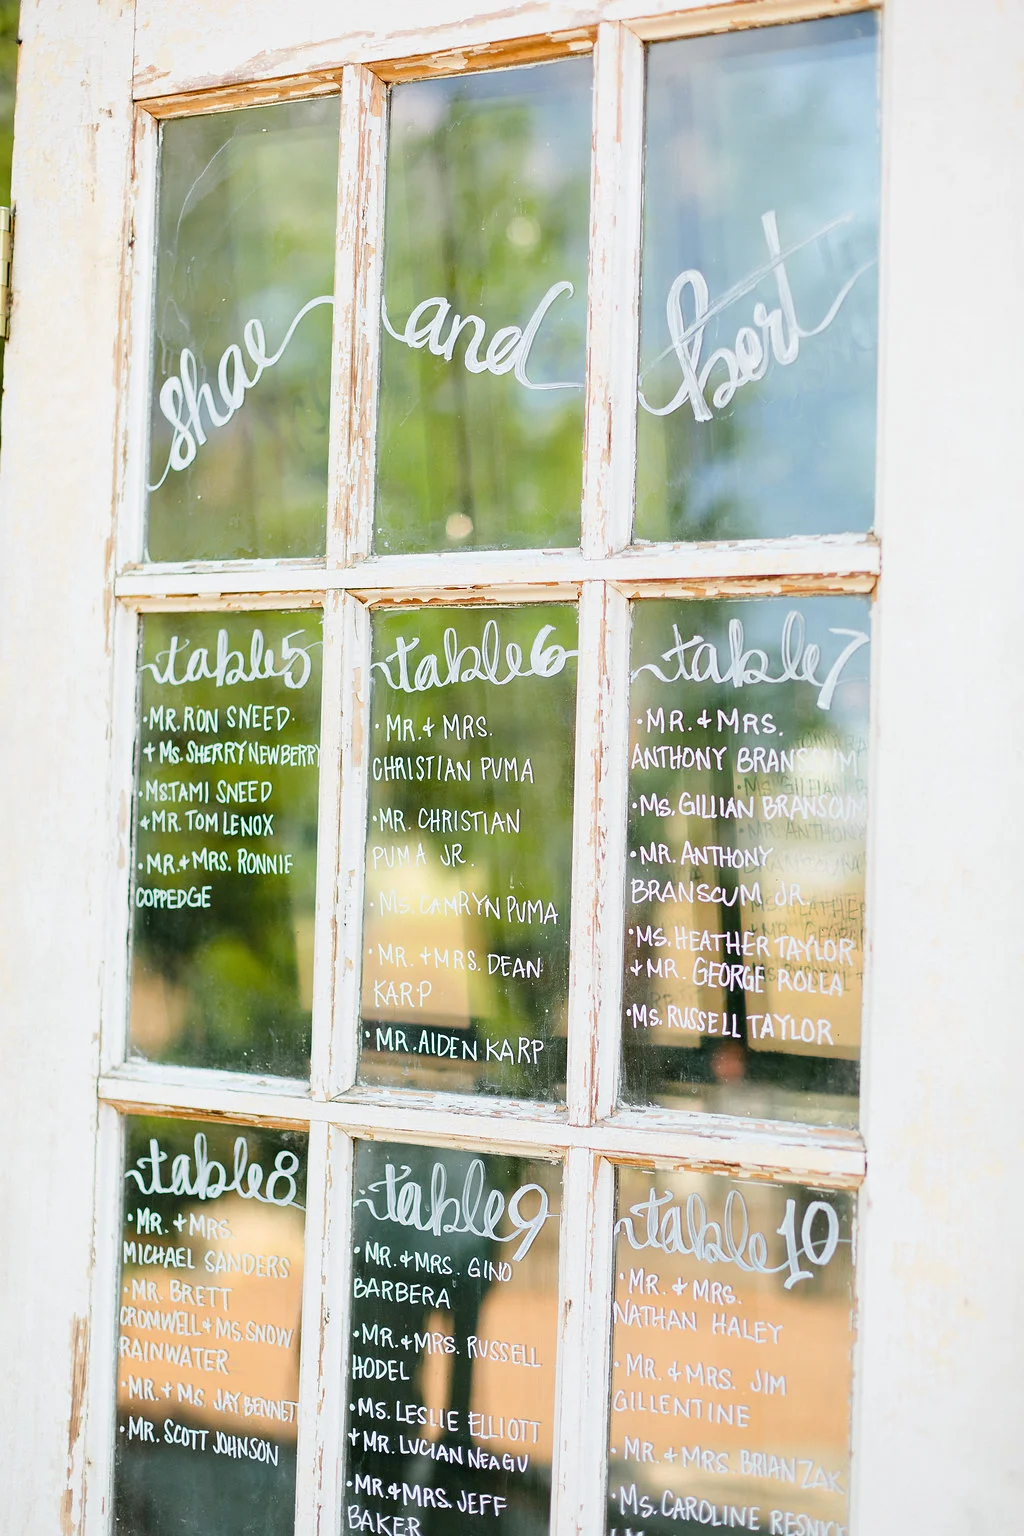 shae and bert
table 5
•MR. RON SNEED
+ Ms. SHERRY NEWBERRY
•MS.TAMI SNEED
+MR. TOM LENOX
•MR.+MRS. RONNIE
COPPEDGE
table 6
•MR.+MRS.
CHRISTIAN PUMA
•MR. CHRISTIAN
PUMA JR.
•Ms. CAMRYN PUMA
•MR. +MRS. DEAN
KARP
•MR. AIDEN KARP
table 7
•MR.+MRS.
ANTHONY BRANSCUM
•Ms. GILLIAN BRANSCUM
•MR. ANTHONY
BRANSCUM JR.
•MS. HEATHER TAYLOR
+MR. GEORGE ROLLA
•Ms. RUSSELL TAYLOR
table 8
•MR. +MRS
MICHAEL SANDERS
•MR. BRETT
CROMWELL+MS. SNOW
RAINWATER
•MR. + MS. JAY BENNET
•MR. SCOTT JOHNSON
table 9
•MR.+MRS. GINO
BARBERA
•MR.+MRS. RUSSELL
HODEL
•MS. LESLIE ELLIOTT
+MR. LUCIAN NEAGU
•MR.+MRS. JEFF
BAKER
table 10
•MR. +MRS.
NATHAN HALEY
•MR. +MRS. JIM
GILLENTINE
•MR. +MRS. BRIAN ZAK
•Ms. CAROLINE RESNICK